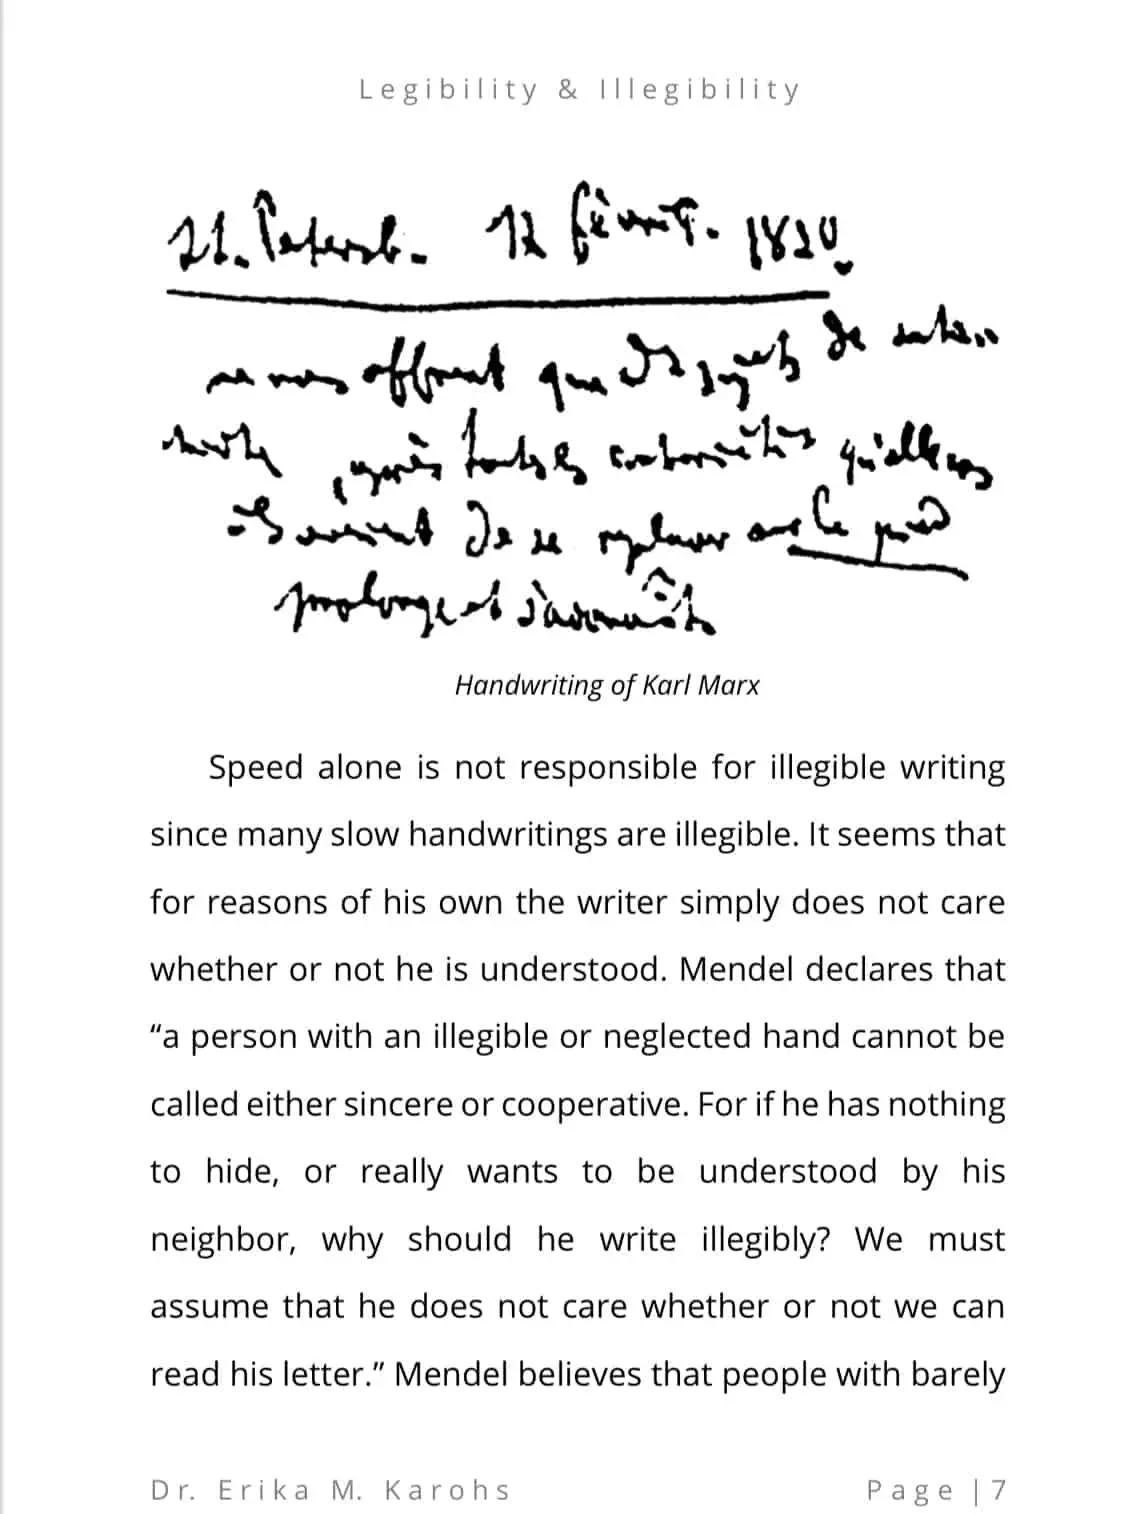 Legibility & Illegibility
12
offrent que de
qu'elles
de se
prolonge et
Handwriting of Karl Marx
Speed alone is not responsible for illegible writing
since many slow handwritings are illegible. It seems that
for reasons of his own the writer simply does not care
whether or not he is understood. Mendel declares that
“a person with an illegible or neglected hand cannot be
called either sincere or cooperative. For if he has nothing
to hide, or really wants to be understood by his
neighbor, why should he write illegibly? We must
assume that he does not care whether or not we can
read his letter.” Mendel believes that people with barely
Dr. Erika M. Karohs Page | 7